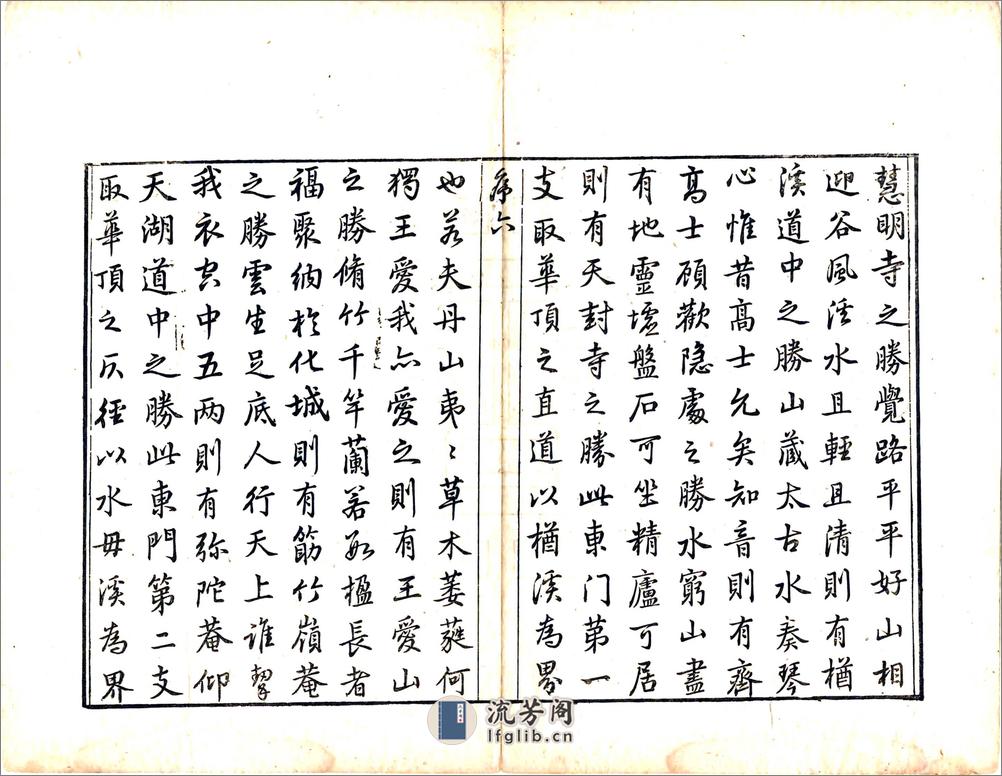 慧明寺之勝覺路平平好山相
迎谷風溪水且輕且清則有楢
溪道中之勝山藏太古水奏琴
心惟昔高士允矣知音則有齊
高士頋歡隐處之勝水窮山盡
有地靈墟盤石可坐精廬可居
則有天封寺之勝此東门第一
支取華頂之直道以楢溪為界
序六
也若夫丹山夷〻草木萎蕤何
獨王愛我亦愛之則有王愛山
之勝脩竹千竿蘭若數楹長者
福聚納於化城則有筋竹嶺菴
之勝雲生足底人行天上誰挈
我衣空中五两則有弥陀菴仰
天湖道中之勝此東門第二支
取華頂之仄徑以水毋溪為界
流芳阁
lfglib.cn